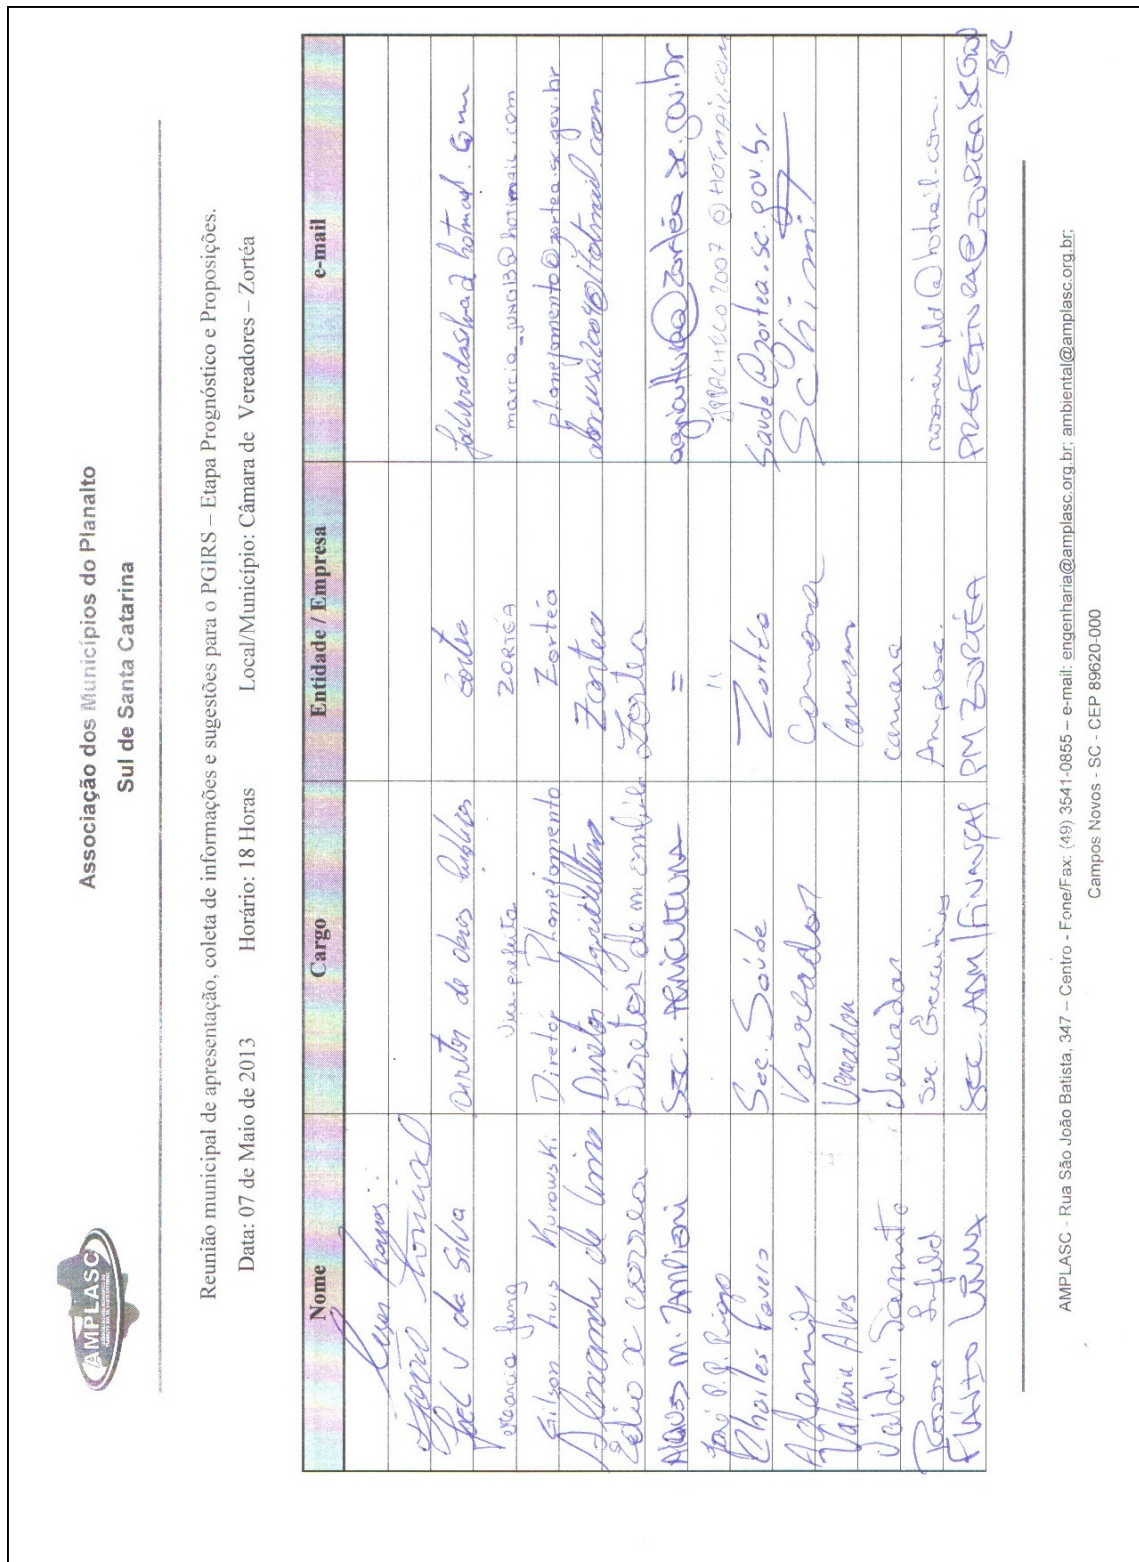 AMPLASC
Associação dos Municípios do Planalto
Sul de Santa Catarina
Reunião municipal de apresentação, coleta de informações e sugestões para o PGIRS – Etapa Prognóstico e Proposições.
Data: 07 de Maio de 2013 Horário: 18 Horas Local/Município: Câmara de Vereadores – Zortéa
Nome Cargo Entidade / Empresa e-mail
da Silva de obras hotmail.com
Marcia Jung Vice-prefeita ZORTÉA marcia_jung13@hotimail.com
Gilson Luis Kurowski Diretor Planejamento Zortéa planejamento@zortea.sc.gov.br
Alexandre de Lima Diretor Agricultura Zortea
Zelio x correa Diretor de Zortea
M. Sec. Agricultura = agricultura@zortéa sc.gov.br
José " 2007@HOTMAIL.COM
Charles Sec. Saúde Zortéa Saude@zortea.sc.gov.br
Ademir Vereador Camara Schimit
Valmir Alves Vereador
Valdir Vereador camara
Rosane Infeld Sec Executiva Amplasc. @hotmail.com.
Sec. ADM/FINANÇAS PM ZORTÉA PREFEITURA@ZORTEA SC GOV
BR
AMPLASC - Rua São João Batista, 347 – Centro - Fone/Fax: (49) 3541-0855 – e-mail: engenharia@amplasc.org.br; ambiental@amplasc.org.br;
Campos Novos - SC - CEP 89620-000